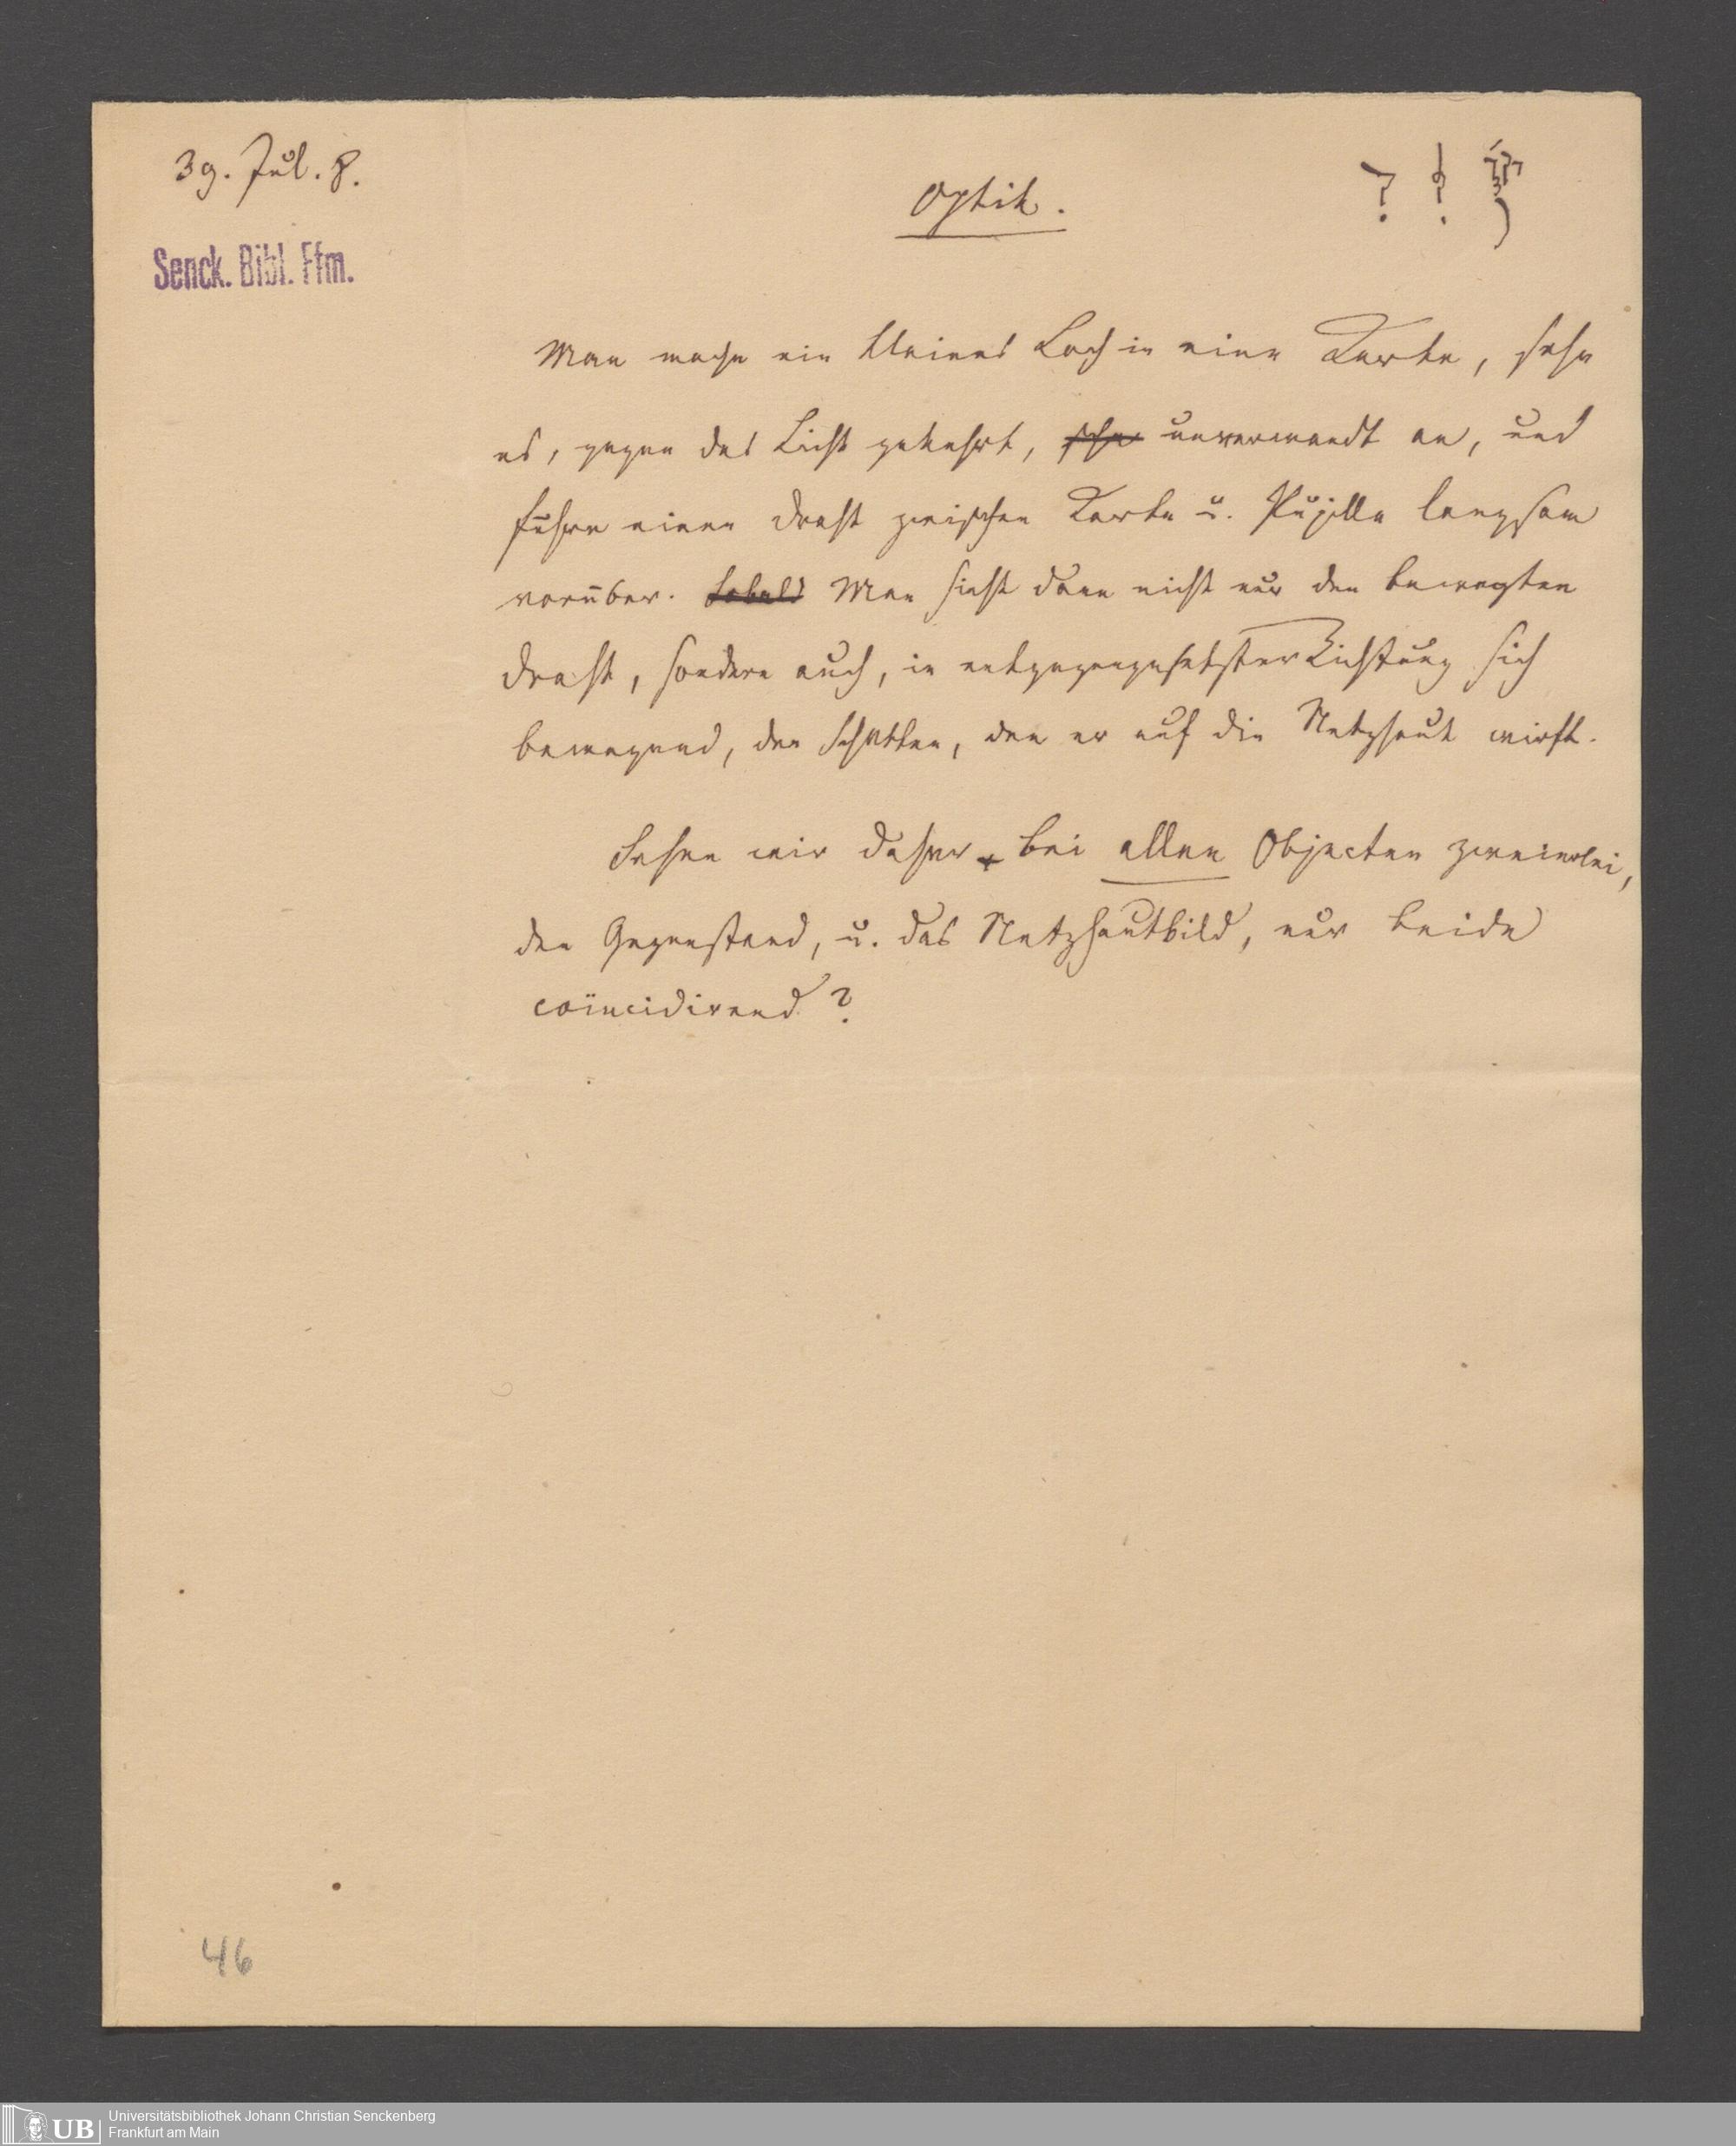 39. Jul. 8.
Optik.
? ?
Senck. Bibl. Ffm.
Man mache ein kleines Loch in eine Karte, sehe
es, gegen das Licht gekehrt, sehe unverwandt an, und
führe einen Draht zwischen Karte u. Pupille langsam
vorüber. Sobald Man sieht dann nicht nur den bewegten
Draht, sondern auch, in entgegengesetzter Richtung sich
bewegend, den Schatten, den er auf die Netzhaut wirft.
Sehen wir daher bei allen Objecten zweierlei,
den Gegenstand, u. das Netzhautbild, nur beide
coïncidirend?
46
UB
Universitätsbibliothek Johann Christian Senckenberg
Frankfurt am Main